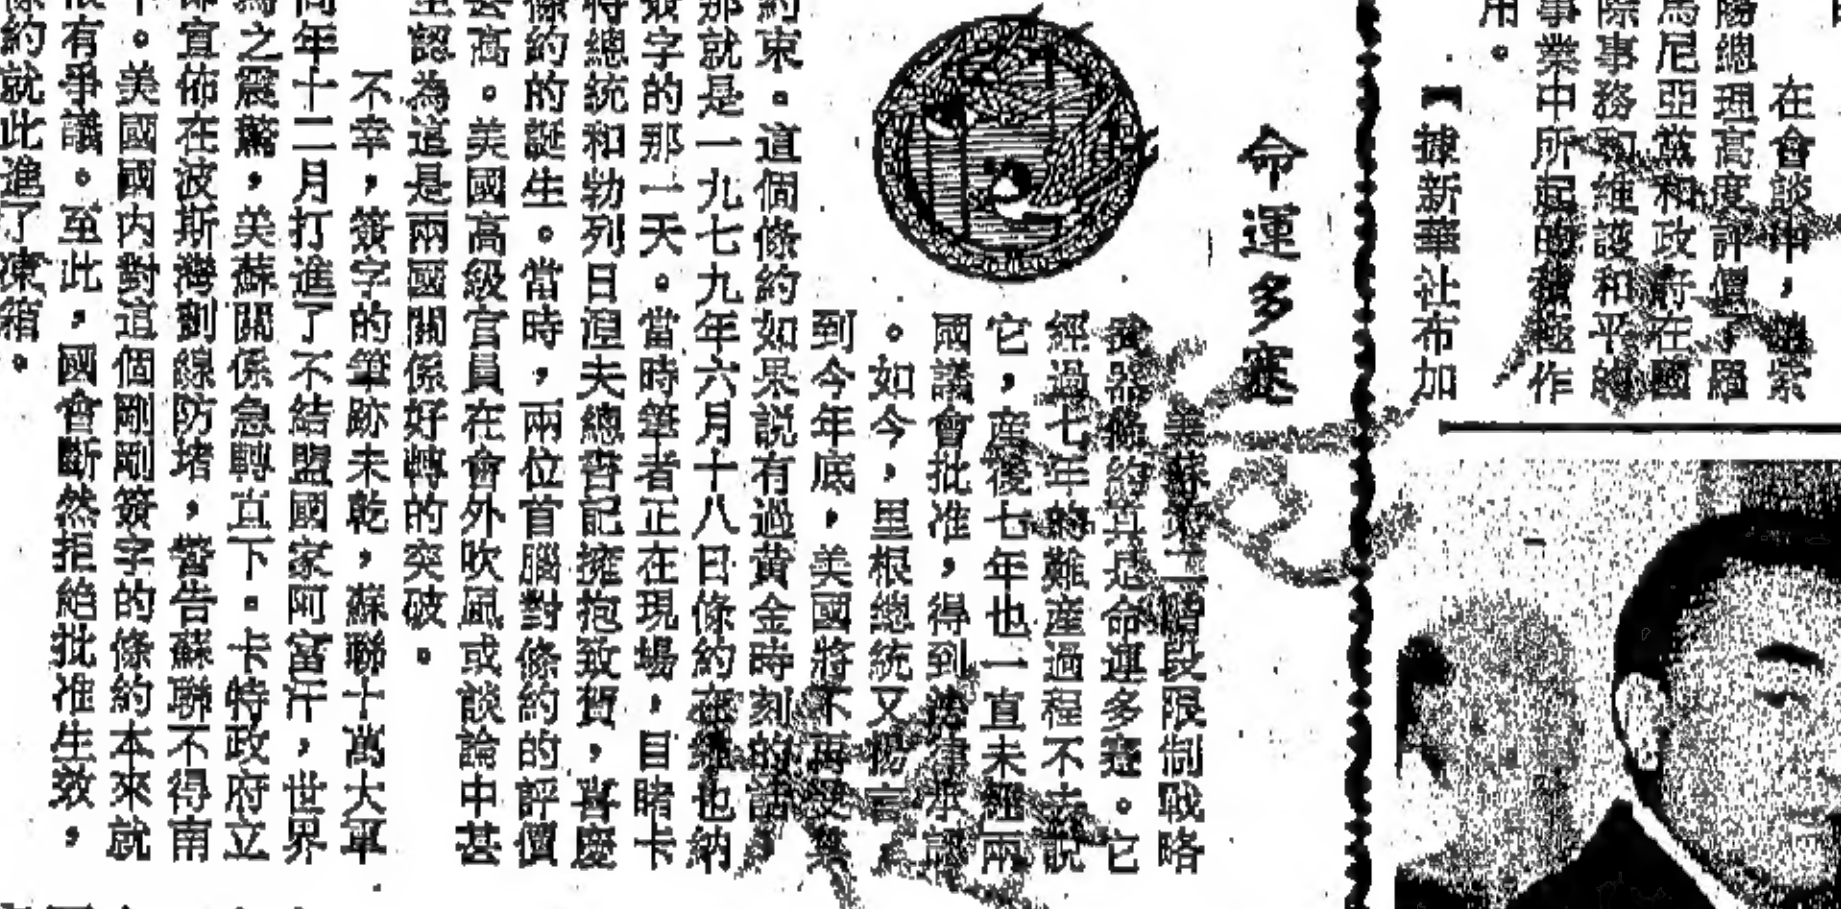 用。
事業中所起的積極作
際事務和維護和平的
馬尼亞黨和政府在國
陽總理高度評價了羅
在會談中，趙紫
【據新華社布加
命運多蹇
美蘇第二階段限制戰略
武器條約真是命運多蹇。它
經過七年的難產過程不去說
它，產後七年也一直未經兩
國議會批准，得到法律承認
。如今，里根總統又揚言
到今年底，美國將不再受其
約束。這個條約如果説有過黃金時刻的話，
那就是一九七九年六月十八日條約在維也納
簽字的那一天。當時筆者正在現場，目睹卡
特總統和勃列日涅夫總書記擁抱致賀，喜慶
條約的誕生。當時，兩位首腦對條約的評價
甚高。美國高級官員在會外吹風或談論中甚
至認為這是兩國關係好轉的突破。
不幸，簽字的筆跡未乾，蘇聯十萬大軍
同年十二月打進了不結盟國家阿富汗，世界
為之震驚，美蘇關係急轉直下。卡特政府立
即宣佈在波斯灣劃線防堵，警告蘇聯不得南
下。美國國内對這個剛剛簽字的條約本來就
很有爭議。至此，國會斷然拒絕批准生效，
條約就此進了凍箱。